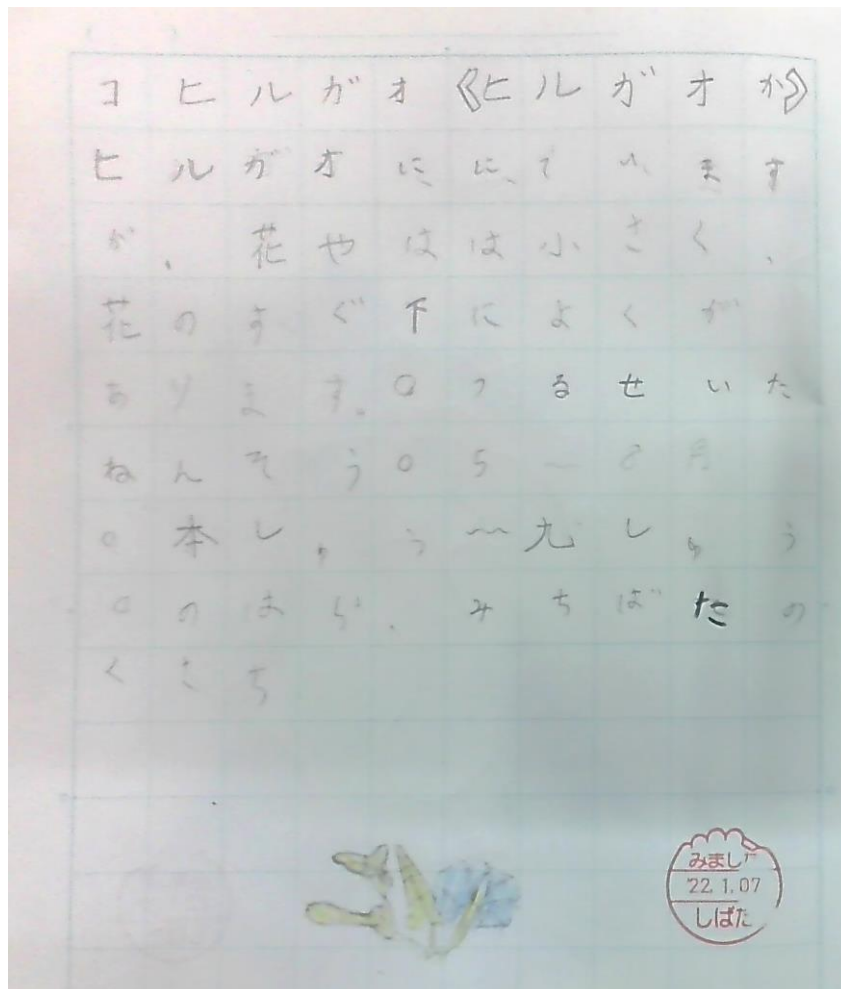 コヒルガオ《ヒルガオか》
ヒルガオににています
が、花やはは小さく、
花のすぐ下によくが
あります。○つるせいた
ねんそう○5〜8月
○本しゅう〜九しゅう
○のはら、みちばたの
くさち
みました
'22.1.07
しばた